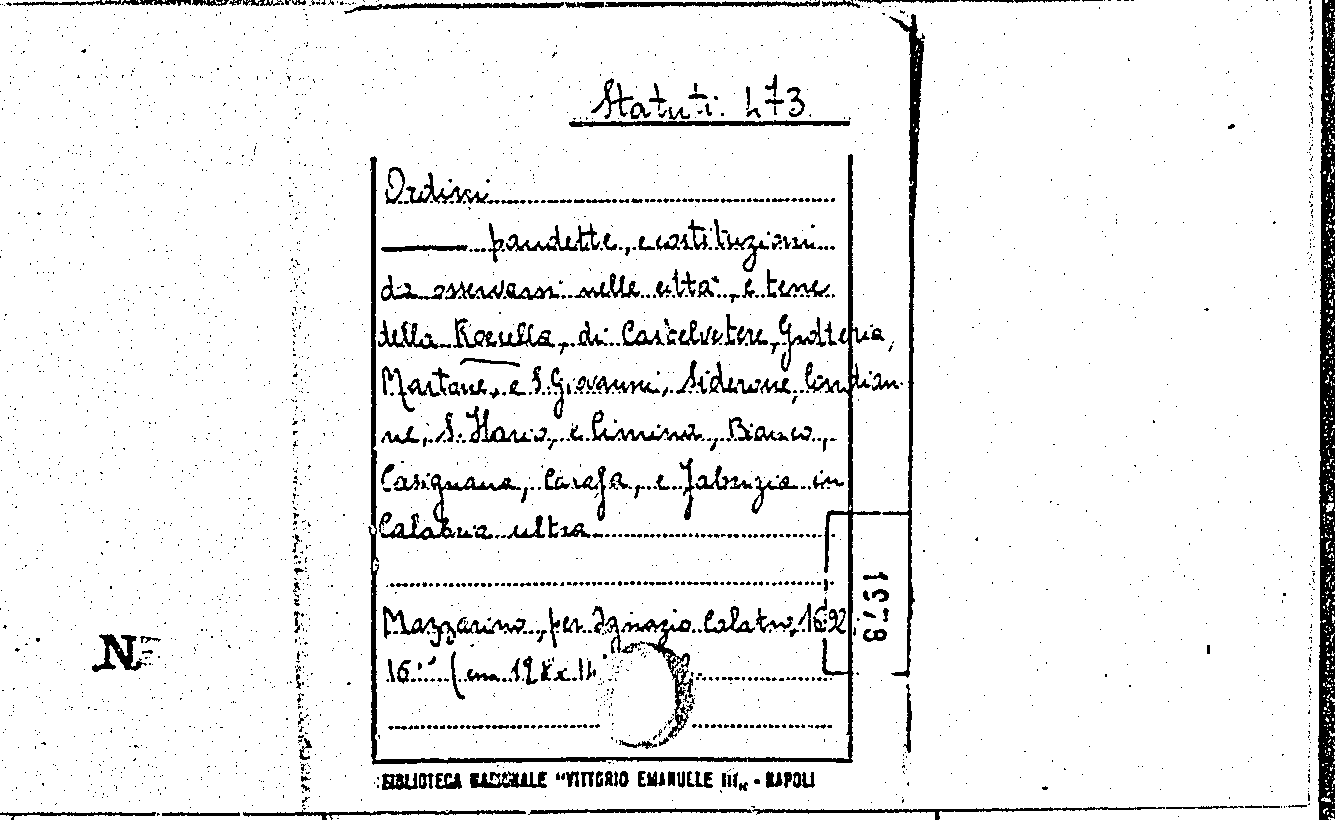 Statuti. 473
Ordini
pandette, e costituzioni
da osservarsi nelle città, e terre
della Roccella, di Castelvetere, Grotteria,
Martone, e S. Giovanni, Siderone, Condoian-
ne, S. Ilario, e Cimina, Bianco,
Casignana, Carafa, e Fabrizia in
Calabria ultra
Mazzarino, per Ignazio Calatro, 1692
16° (cm 19
1978
N
BIBLIOTECA NAZIONALE "VITTORIO EMANUELE III„ - NAPOLI